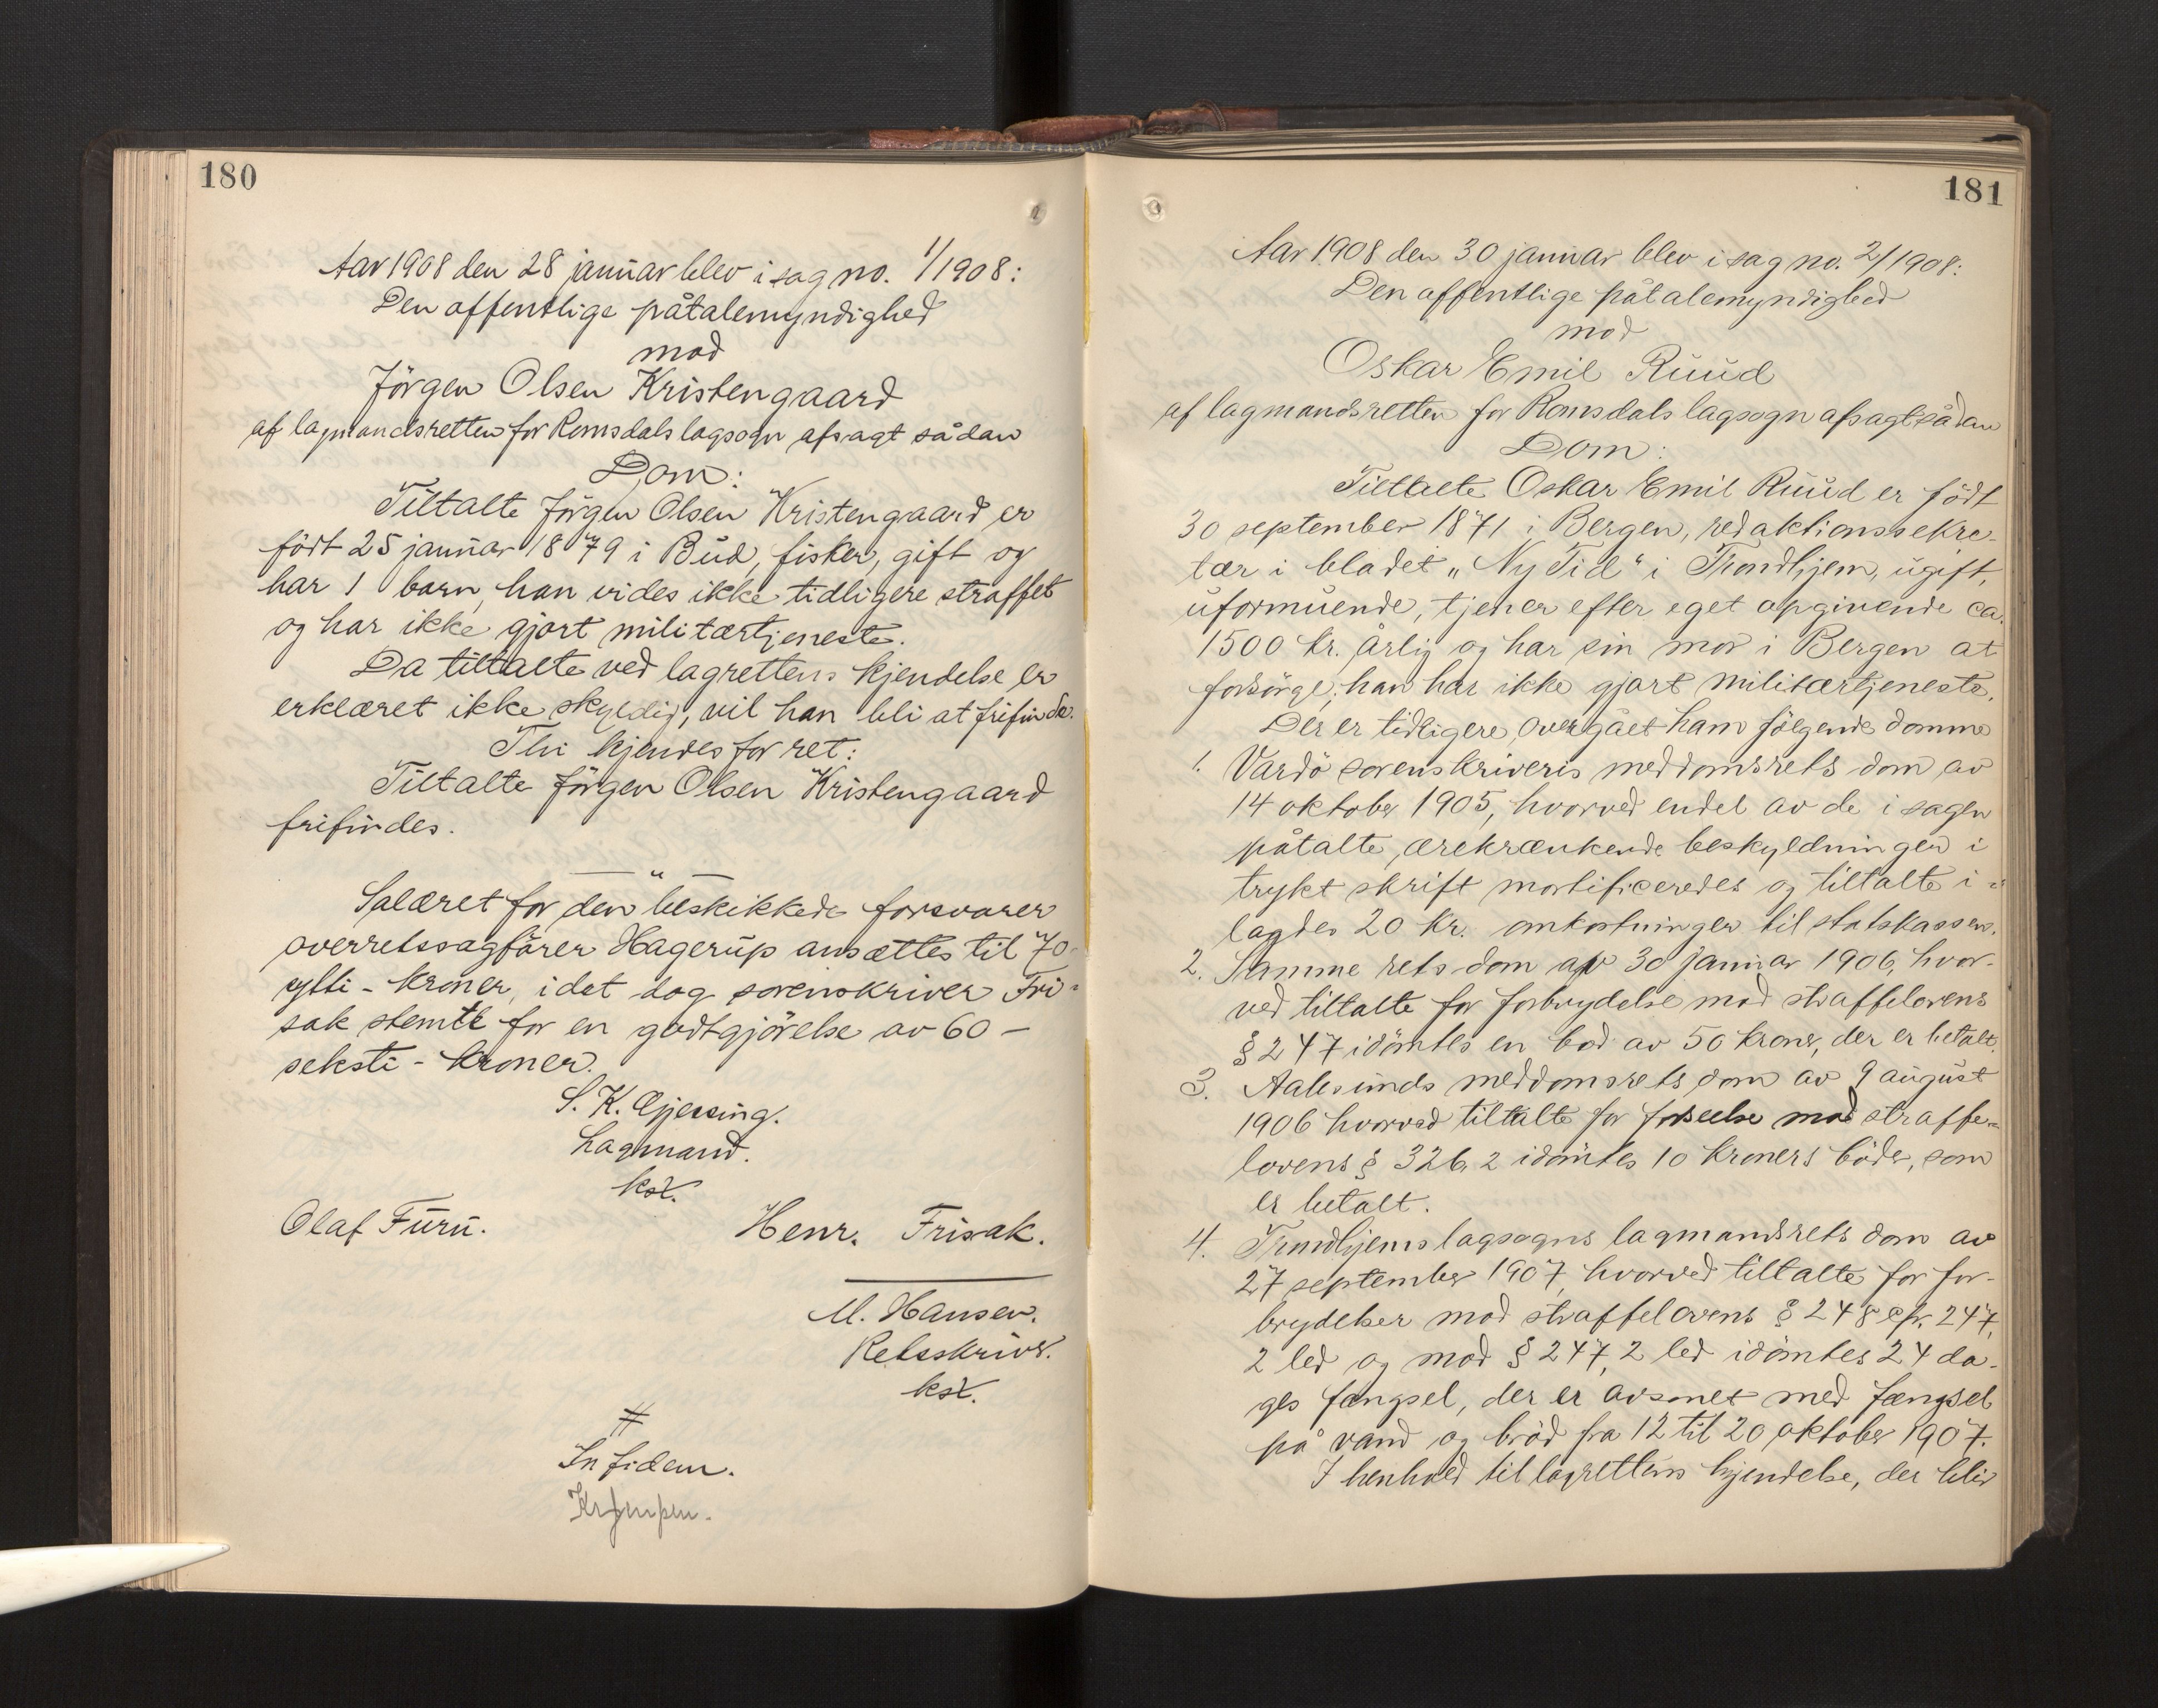 180
Aar 1908 den 28 januar blev i sag no. 1/1908:
Den offentlige påtalemyndighed
mod
Jörgen Olsen Kristengaard
af lagmandsretten for Romsdals lagsogn afsagt sådan
Dom:
Tiltalte Jörgen Olsen Kristengaard er
födt 25 januar 1879 i Bud, fisker, gift og
har 1 barn, han vides ikke tidligere straffet
og har ikke gjort militærtjeneste.
Da tiltalte ved lagrettens kjendelse er
erklæret ikke skyldig, vil han bli at frifinde.
Thi kjendes for ret:
Tiltalte Jörgen Olsen Kristengaard
frifindes.
— " —
Salæret for den beskikkede forsvarer
overretssagförer Hagerup ansættes til 70-
sytti - kroner, idet dog sorenskriver Fri-
sak stemte for en godtgjörelse av 60 -
seksti - kroner.
S. K. Gjessing.
Lagmand.
kst.
Olaf Furu.
Henr. Frisak.
M. Hansen.
Retsskriver.
kst.
#
In fidem.
181
Aar 1908 den 30 januar blev i sag no. 2/1908:
Den offentlige påtalemyndighed
mod
Oskar Emil Ruud
af lagmandsretten for Romsdals lagsogn afsagt sådan
Dom:
Tiltalte Oskar Emil Ruud er födt
30 september 1871 i Bergen, redaktionssekre-
tær i bladet „Ny Tid" i Trondhjem, ugift,
uformuende, tjener efter eget opgivende ca.
1500 kr. årlig og har sin mor i Bergen at
forsörge; han har ikke gjort militærtjeneste.
Der er tidligere overgået ham fölgende domme
1. Vardö sorenskriveris meddomsrets dom av
14 oktober 1905, hvorved endel av de i sagen
påtalte, ærekrænkende beskyldninger i
trykt skrift mortificeredes og tiltalte i-
lagdes 20 kr. omkostninger til statskassen.
2. Samme rets dom av 30 januar 1906, hvor-
ved tiltalte for forbrydelse mod straffelovens
§ 247 idömtes en bod av 50 kroner, der er betalt.
3. Aalesunds meddomsrets dom av 9 august
1906 hvorved tiltalte for forseelse mod straffe-
lovens § 326, 2 idömtes 10 kroners böder, som
er betalt.
4. Trondhjems lagsogns lagmandsrets dom av
27 september 1907, hvorved tiltalte for for-
brydelser mod straffelovens § 248 cfr. 247,
2 led og mod § 247, 2 led idömtes 24 da-
ges fængsel, der er avsonet med fængsel
på vand og bröd fra 12 til 20 oktober 1907.
I henhold til lagrettens kjendelse, der blir